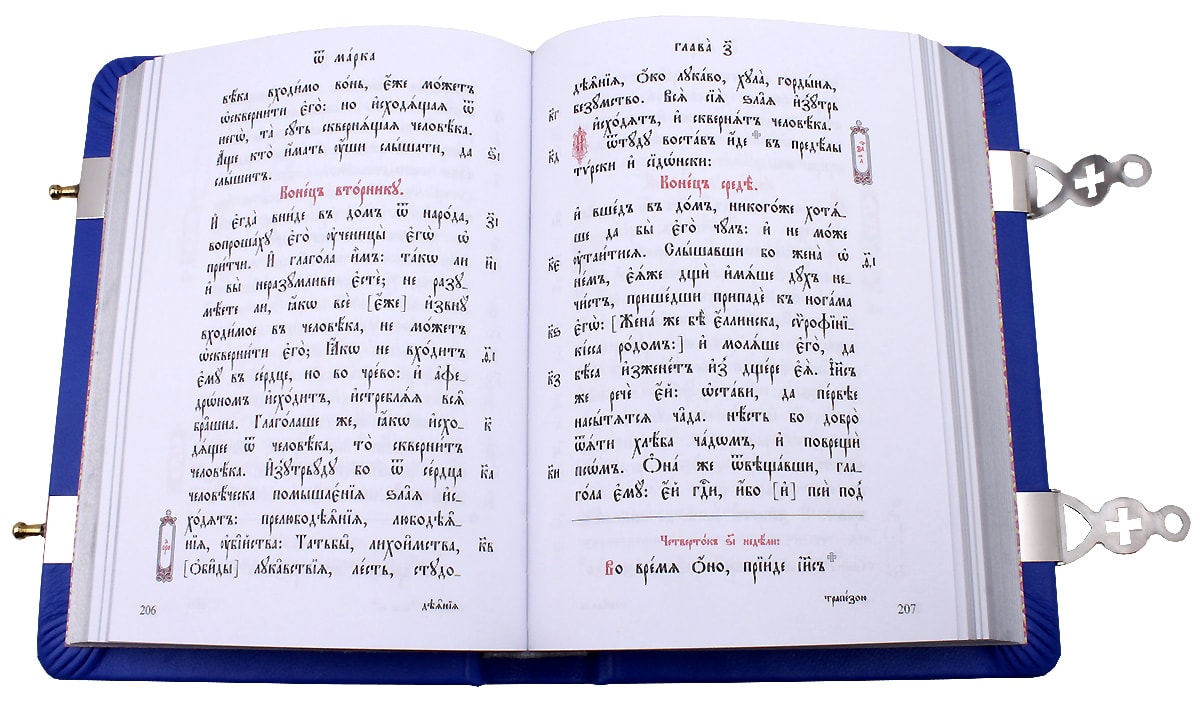 Ѿ ма́рка
вѣ́ка входи́мо во́нь, є҆́же мо́жетъ
ѡ҆скверни́ти є҆го̀: но и҆сходѧ́щаѧ ѿ
негѡ̀, та̑ сꙋ́ть сквернѧ̑щаѧ человѣ́ка.
А҆́ще кто̀ и҆́мать ᲂу҆́шы слы́шати, да
ѕ҃і
слы́шитъ.
Коне́цъ вто́рникꙋ.
И҆ є҆гда̀ вни́де въ до́мъ ѿ наро́да,
з҃і
вопроша́хꙋ є҆го̀ ᲂу҆чн҃цы̀ є҆гѡ̀ ѡ҆
при́тчи. И҆ глаго́ла и҆̀мъ: та́кѡ ли
и҃і
и҆ вы̀ неразꙋ́мливи є҆стѐ; не разꙋ-
мѣ́ете ли, ꙗ҆́кѡ всѐ [є҆́же] и҆звнꙋ̀
входи́мое въ человѣ́ка, не мо́жетъ
ѡ҆скверни́ти є҆го̀; Ꙗ҆́кѡ не вхо́дитъ
ѳ҃і
є҆мꙋ̀ въ се́рдце, но во чре́во: и҆ а҆фе-
дрѡ́номъ и҆схо́дитъ, и҆стреблѧ́ѧ всѧ̑
бра̑шна. Глаго́лаше же, ꙗ҆́кѡ и҆схо-
к҃
дѧ́щее ѿ человѣ́ка, то̀ скверни́тъ
человѣ́ка. И҆знꙋтрьꙋ́дꙋ бо ѿ се́рдца
к҃а
человѣ́ческа помышлє́нїѧ ѕла̑ѧ и҆с-
хо́дѧтъ: прелюбодѣѧ̑нїѧ, любодѣѧ̑-
нїѧ, ᲂу҆бі̑йства: Татьбы̑, лихои̑мства,
к҃в
[ѻ҆би̑ды] лꙋка̑вствїѧ, ле́сть, стꙋдо-
206
дѣѧ̑нїѧ
Глава̀ з҃
дѣѧ̑нїѧ, ѻ҆́ко лꙋка́во, хꙋла̀, горды́нѧ,
безꙋ́мство. Всѧ̑ сїѧ̑ ѕла̑ѧ и҆знꙋ́трь
к҃г
и҆схо́дѧтъ, и҆ сквернѧ́тъ человѣ́ка.
И҆ ѿтꙋ́дꙋ воста́въ и҆́де въ предѣ́лы
к҃д
тѵ̑рски и҆ сїдѡ̑нски:
Коне́цъ средѣ̀.
и҆ вше́дъ въ до́мъ, никого́же хотѧ́-
ше да бы̀ є҆го̀ чꙋ́лъ: и҆ не мо́же
ᲂу҆таи́тисѧ. Слы́шавши бо жена̀ ѡ҆
к҃є
не́мъ, є҆ѧ́же дщѝ и҆мѧ́ше дꙋ́хъ не-
чи́стъ, прише́дши припадѐ къ нога́ма
є҆гѡ̀: [Жена́ же бѣ̀ є҆́ллинска, сѷрофїні-
к҃ѕ
кі́сса ро́домъ:] и҆ молѧ́ше є҆го̀, да
бѣ́са и҆зжене́тъ и҆з̾ дще́ре є҆ѧ̀. І҆и҃съ
к҃з
же речѐ є҆́й: ѡ҆ста́ви, да пе́рвѣе
насы́тѧтсѧ ча̑да. нѣ́сть бо добро̀
ѿѧ́ти хлѣ́ба ча́дѡмъ, и҆ поврещѝ
псѡ́мъ. Ѻ҆на́ же ѿвѣща́вши, гла-
к҃и
го́ла є҆мꙋ̀: є҆́й гдⷭ҇и, и҆́бо [и҆] псѝ под̾
Четверто́къ ѕ҃і недѣ́ли:
Во вре́мѧ ѻ҆́но, прїи́де і҆и҃съ
трапе́зою
207